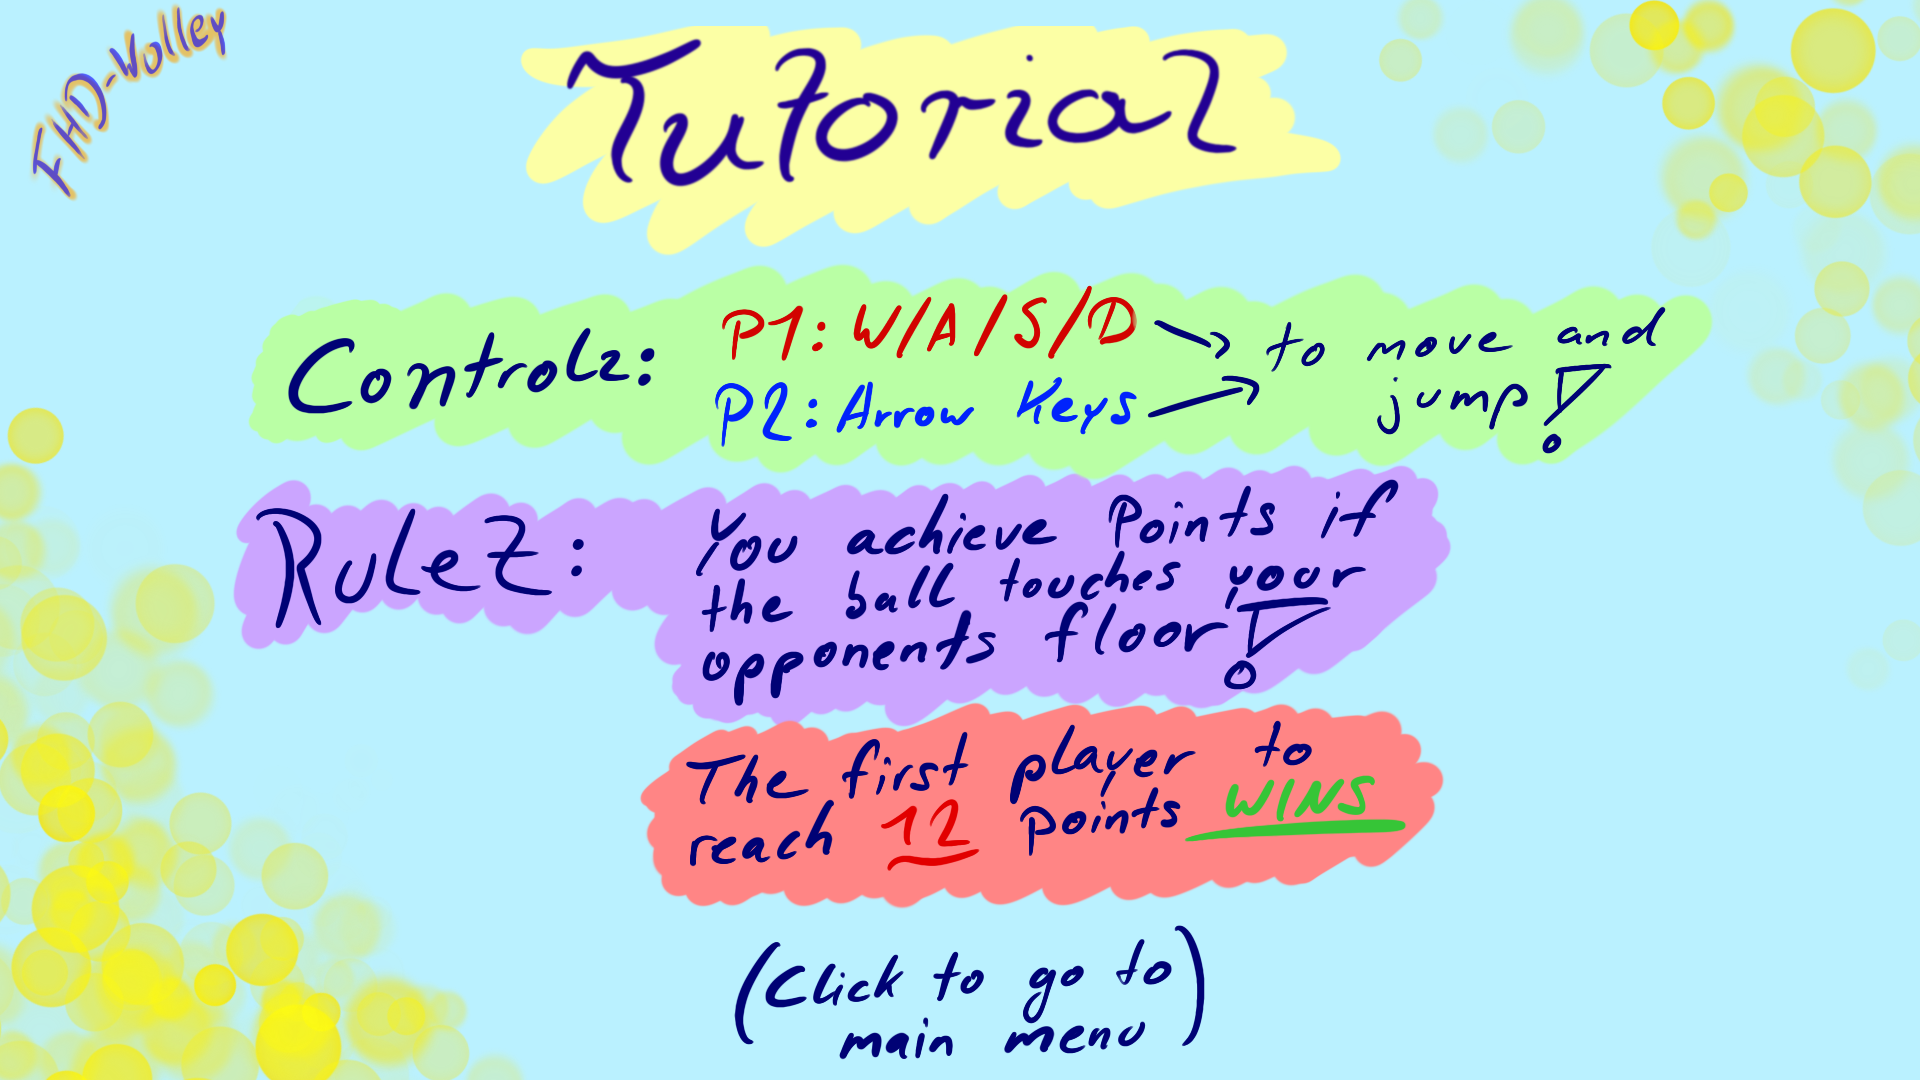 FHD-Volley
Tutorial
Controlz:
P1: W/A/S/D
P2: Arrow Keys
to move and
jump!
RuleZ:
You achieve Points if
the ball touches your
opponents floor!
The first player to
reach 12 points WINS
(Click to go to
main menu)